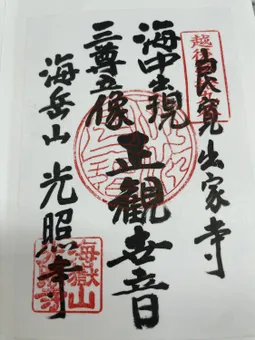 良寛出家寺
海中出現
三尊五像
正観世音
海岳山 光照寺
越後
海嶽山